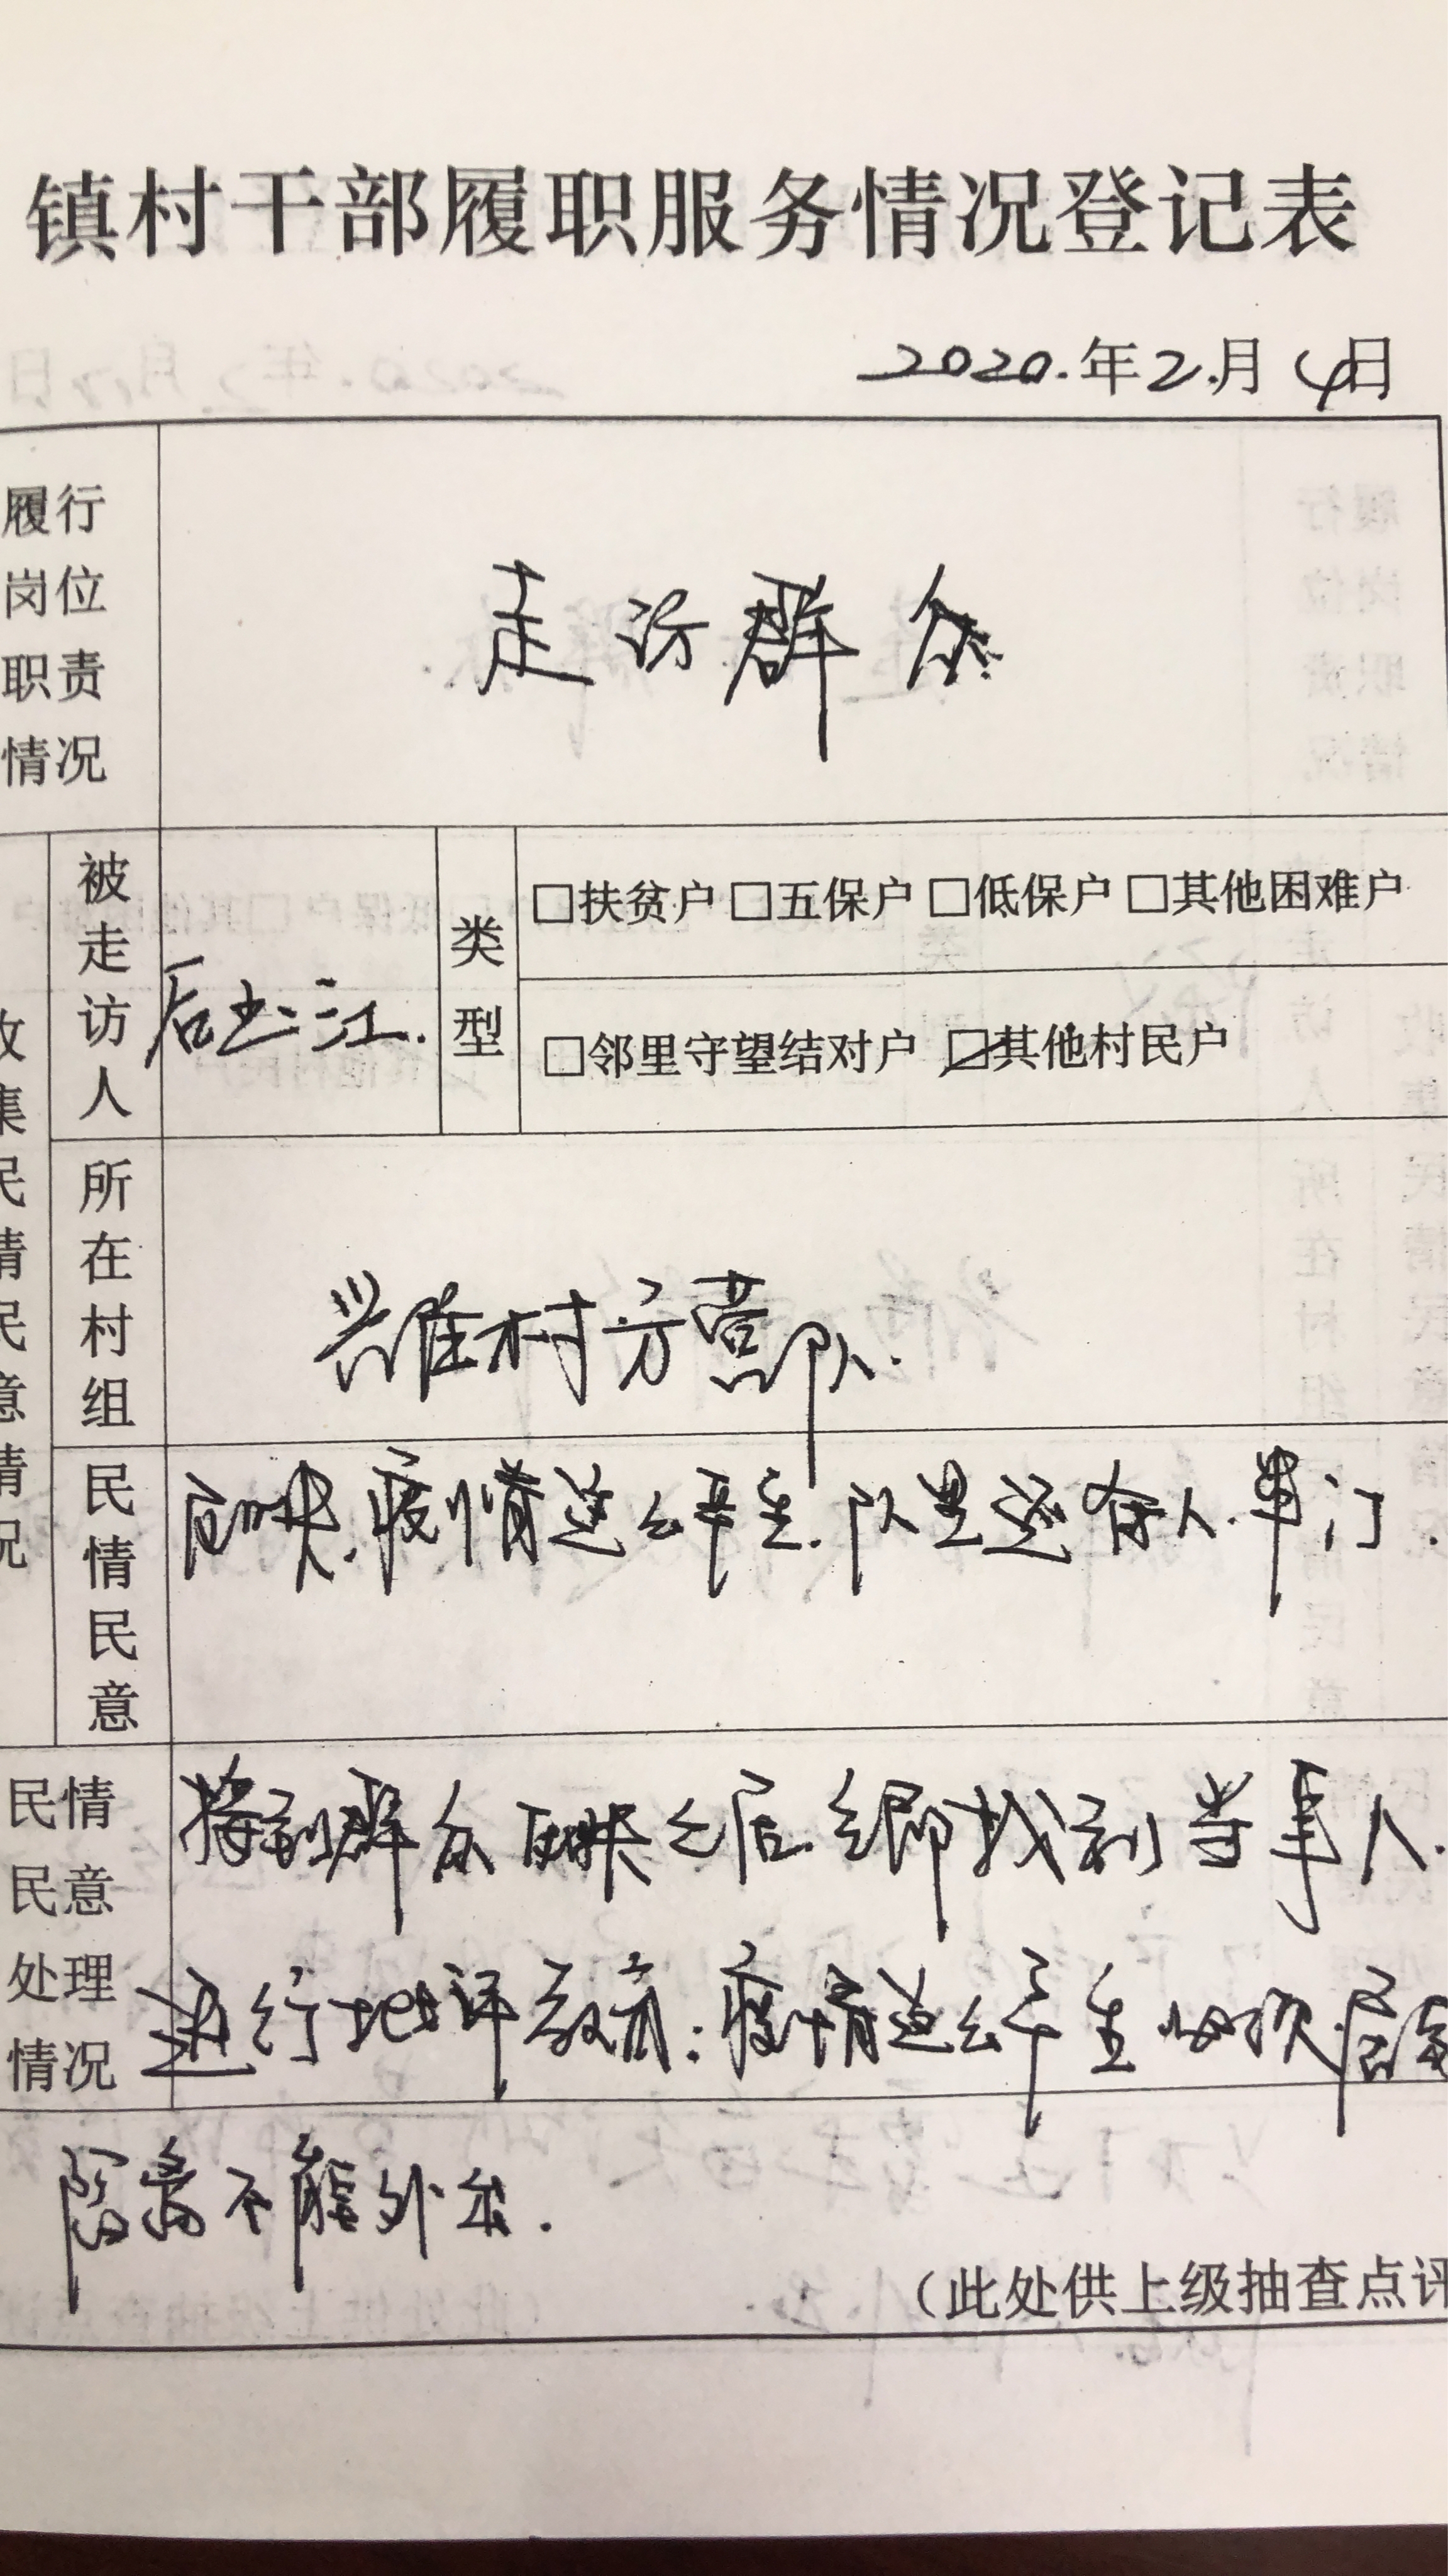 镇村干部履职服务情况登记表
2020.年2.月4日
履行岗位职责情况
走访群众
收集民情民意情况
被走访人
后士江.
类型
□扶贫户 □五保户 □低保户 □其他困难户
□邻里守望结对户 ☑其他村民户
所在村组
兴胜村方营队.
民情民意
反映.疫情这么严重.队里还有人.串门.
民情民意处理情况
接到群众反映之后.立即找到当事人.
进行批评教育:疫情这么严重必须居家
隔离不能外出.
(此处供上级抽查点评